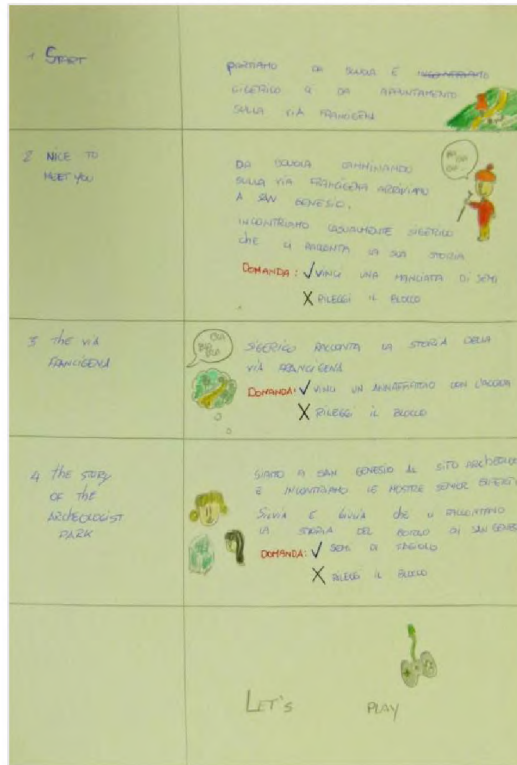 1 START
PARTIAMO DA SCUOLA E
SIGERICO CI DA APPUNTAMENTO
SULLA VIA FRANCIGENA
2 NICE TO
MEET YOU
DA SCUOLA CAMMINANDO
SULLA VIA FRANCIGENA ARRIVIAMO
A SAN GENESIO.
INCONTRIAMO CASUALMENTE SIGERICO
che CI RACCONTA LA SUA STORIA
DOMANDA: ✓ VINCI UNA MANCIATA DI SEMI
X RILEGGI IL BLOCCO
3 the VIA
FRANCIGENA
BLA
BLA
BLA
SIGERICO RACCONTA LA STORIA DELLA
VIA FRANCIGENA
DOMANDA: ✓ VINCI UN ANNAFFIATOIO CON L'ACQUA
X RILEGGI IL BLOCCO
4 the STORY
OF the
ARCHEOLOGIST
PARK
SIAMO A SAN GENESIO AL SITO
E INCONTRIAMO LE NOSTRE SENIOR
SILVIA E GIULIA che CI RACCONTANO
LA STORIA DEL BORGO DI SAN
DOMANDA: ✓ SEMI DI FAGIOLO
X RILEGGI IL BLOCCO
LET'S PLAY